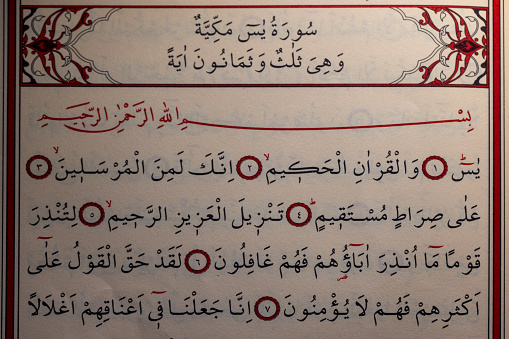 سُورَةُ يٰسٓ مَكِّيَّةٌ
وَهِىَ ثَلٰثٌ وَثَمَانُونَ اٰيَةً
بِسْمِ اللّٰهِ الرَّحْمٰنِ الرَّحٖيمِ
يٰسٓ ﴿١﴾ وَالْقُرْاٰنِ الْحَكٖيمِۙ ﴿٢﴾ اِنَّكَ لَمِنَ الْمُرْسَلٖينَۙ ﴿٣﴾
عَلٰى صِرَاطٍ مُسْتَقٖيمٍؕ ﴿٤﴾ تَنْزٖيلَ الْعَزٖيزِ الرَّحٖيمِۙ ﴿٥﴾ لِتُنْذِرَ
قَوْمًا مَٓا اُنْذِرَ اٰبَٓاؤُ۬هُمْ فَهُمْ غَافِلُونَ ﴿٦﴾ لَقَدْ حَقَّ الْقَوْلُ عَلٰٓى
اَكْثَرِهِمْ فَهُمْ لَا يُؤْمِنُونَ ﴿٧﴾ اِنَّا جَعَلْنَا فٖٓى اَعْنَاقِهِمْ اَغْلَالًا